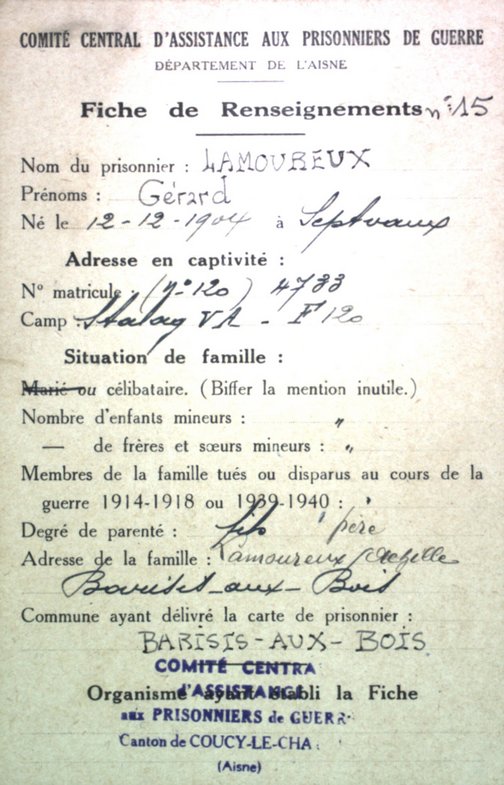 COMITÉ CENTRAL D'ASSISTANCE AUX PRISONNIERS DE GUERRE
DÉPARTEMENT DE L'AISNE
Fiche de Renseignements n° 15
Nom du prisonnier : LAMOUREUX
Prénoms : Gérard
Né le 12-12-1904 à Septvaux
Adresse en captivité :
N° matricule : (n° 120) 4733
Camp : Stalag VA - F 120
Situation de famille :
Marié ou célibataire. (Biffer la mention inutile.)
Nombre d'enfants mineurs : "
— de frères et sœurs mineurs : "
Membres de la famille tués ou disparus au cours de la
guerre 1914-1918 ou 1939-1940 : "
Degré de parenté : fils père
Adresse de la famille : Lamoureux
Barisis-aux-Bois
Commune ayant délivré la carte de prisonnier :
BARISIS-AUX-BOIS
COMITÉ CENTRA
Organisme ayant établi la Fiche
d'ASSISTANCE
aux PRISONNIERS de GUERR
Canton de COUCY-LE-CHA
(Aisne)